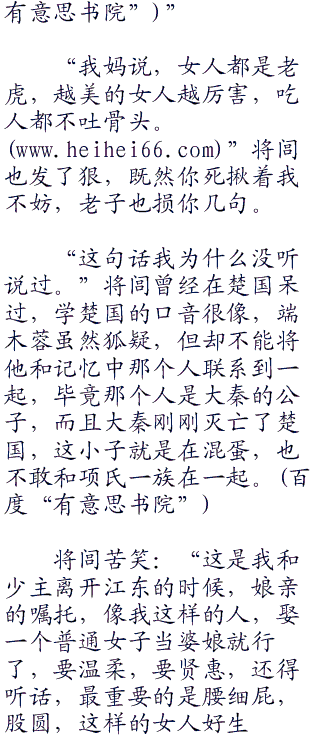 有意思书院”)”
“我妈说，女人都是老
虎，越美的女人越厉害，吃
人都不吐骨头。
(www.heihei66.com)”将闾
也发了狠，既然你死揪着我
不妨，老子也损你几句。
“这句话我为什么没听
说过。”将闾曾经在楚国呆
过，学楚国的口音很像，端
木蓉虽然狐疑，但却不能将
他和记忆中那个人联系到一
起，毕竟那个人是大秦的公
子，而且大秦刚刚灭亡了楚
国，这小子就是在混蛋，也
不敢和项氏一族在一起。(百
度“有意思书院”)
将闾苦笑：“这是我和
少主离开江东的时候，娘亲
的嘱托，像我这样的人，娶
一个普通女子当婆娘就行
了，要温柔，要贤惠，还得
听话，最重要的是腰细屁，
股圆，这样的女人好生